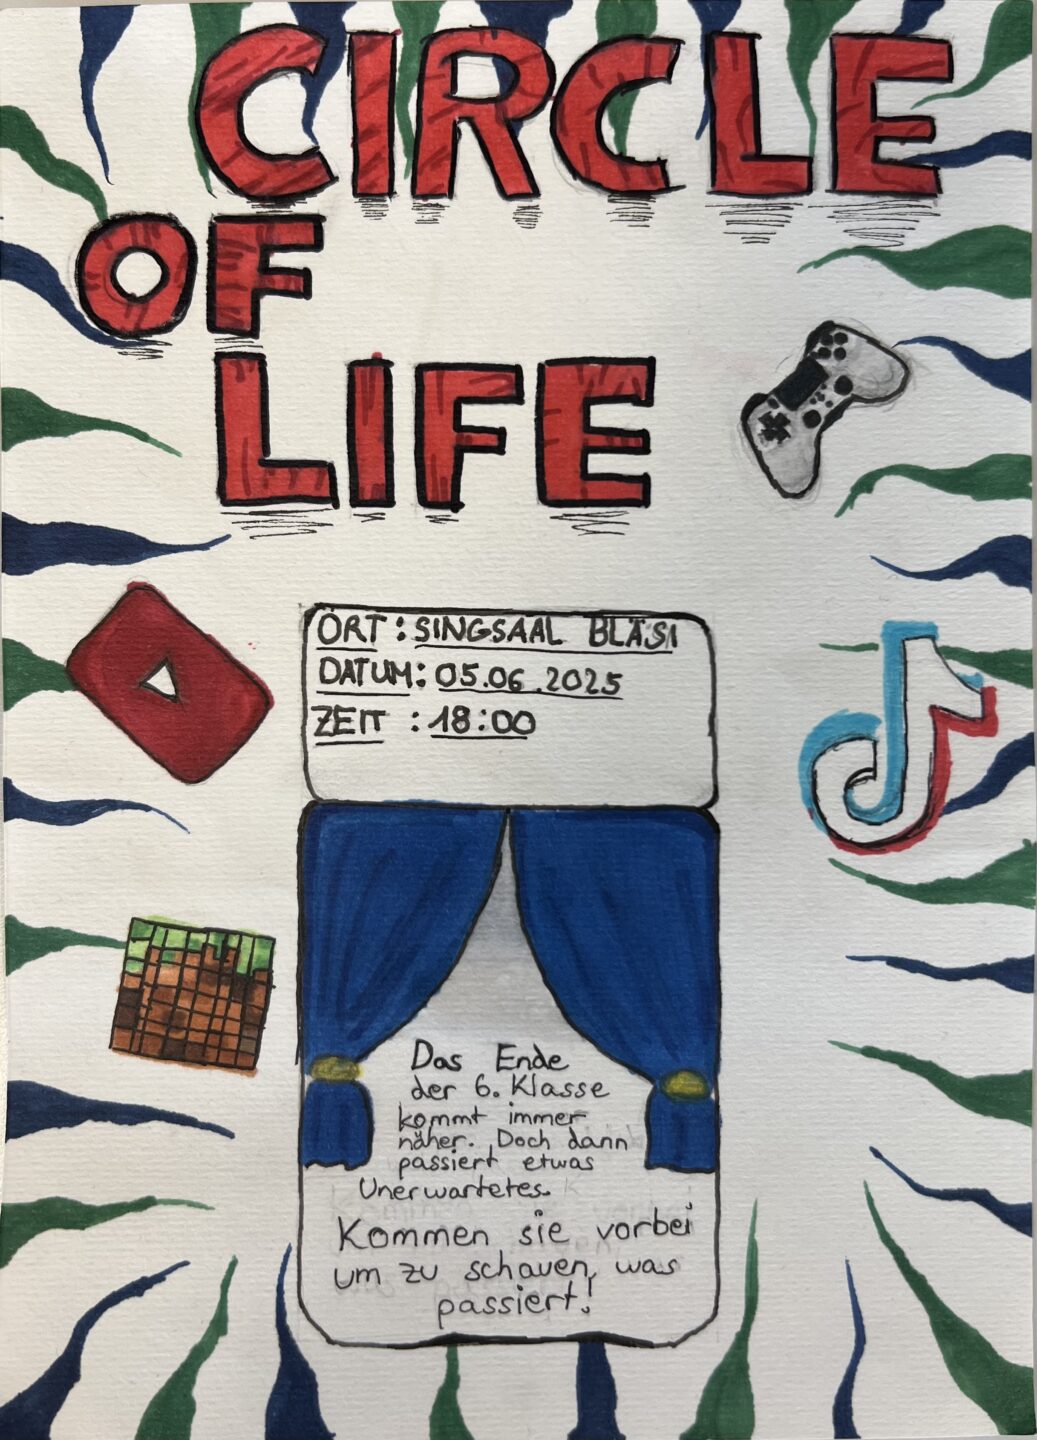 CIRCLE
OF
LIFE
ORT : SINGSAAL BLÄSI
DATUM: 05.06.2025
ZEIT : 18:00
Das Ende
der 6. Klasse
kommt immer
näher. Doch dann
passiert etwas
Unerwartetes.
Kommen sie vorbei
um zu schauen, was
passiert!